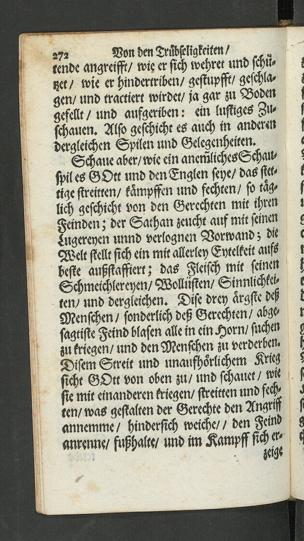 272 Von den Trübseligkeiten/
tende angreifft/ wie er sich wehret und schü-
tzet/ wie er hindertriben/ gestupfft/ geschla-
gen/ und tractiert wirdet/ ja gar zu Boden
gefellt/ und aufgeriben: ein lustiges Zu-
schauen. Also geschicht es auch in anderen
dergleichen Spilen und Gelegenheiten.
Schaue aber/ wie ein anemliches Schau-
spil es GOtt und den Englen seye/ das stet-
tige streitten/ kämpffen und fechten/ so täg-
lich geschicht von den Gerechten mit ihren
Feinden; der Sathan zeucht auf mit seinen
Lugereyen unnd verlognen Vorwand; die
Welt stellt sich ein mit allerley Eytelkeit aufs
beste außstaffiert; das Fleisch mit seinen
Schmeichlereyen/ Wollüsten/ Sinnlichkei-
ten/ und dergleichen. Dise drey ärgste deß
Menschen/ sonderlich deß Gerechten/ abge-
sagtiste Feind blasen alle in ein Horn/ suchen
zu kriegen/ und den Menschen zu verderben.
Disem Streit und unaufhörlichem Krieg
sicht GOtt von oben zu/ und schauet/ wie
sie mit einanderen kriegen/ streitten und fech-
ten/ was gestalten der Gerechte den Angriff
annemme/ hindersich weiche/ den Feind
anrenne/ fußhalte/ und im Kampff sich er-
zeige